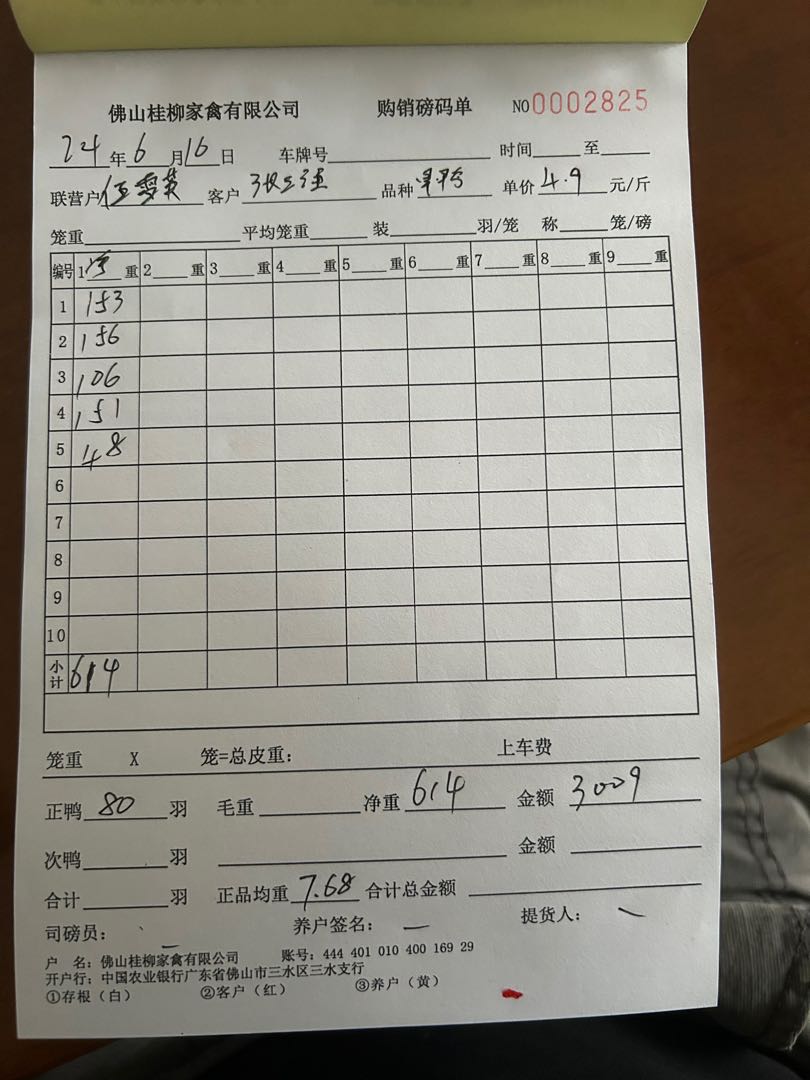 佛山桂柳家禽有限公司 购销磅码单 NO0002825
24年6月16日 车牌号 时间 至
联营户 客户 品种 单价4.9元/斤
笼重 平均笼重 装 羽/笼 称 笼/磅
编号 1 净 重 2 重 3 重 4 重 5 重 6 重 7 重 8 重 9 重
1 153
2 156
3 106
4 151
5 48
6
7
8
9
10
小计 614
笼重 X 笼=总皮重: 上车费
正鸭80羽 毛重 净重614 金额3009
次鸭 羽 金额
合计 羽 正品均重7.68 合计总金额
司磅员: 养户签名: 提货人:
户 名: 佛山桂柳家禽有限公司 账号: 444 401 010 400 169 29
开户行: 中国农业银行广东省佛山市三水区三水支行
①存根(白) ②客户(红) ③养户(黄)